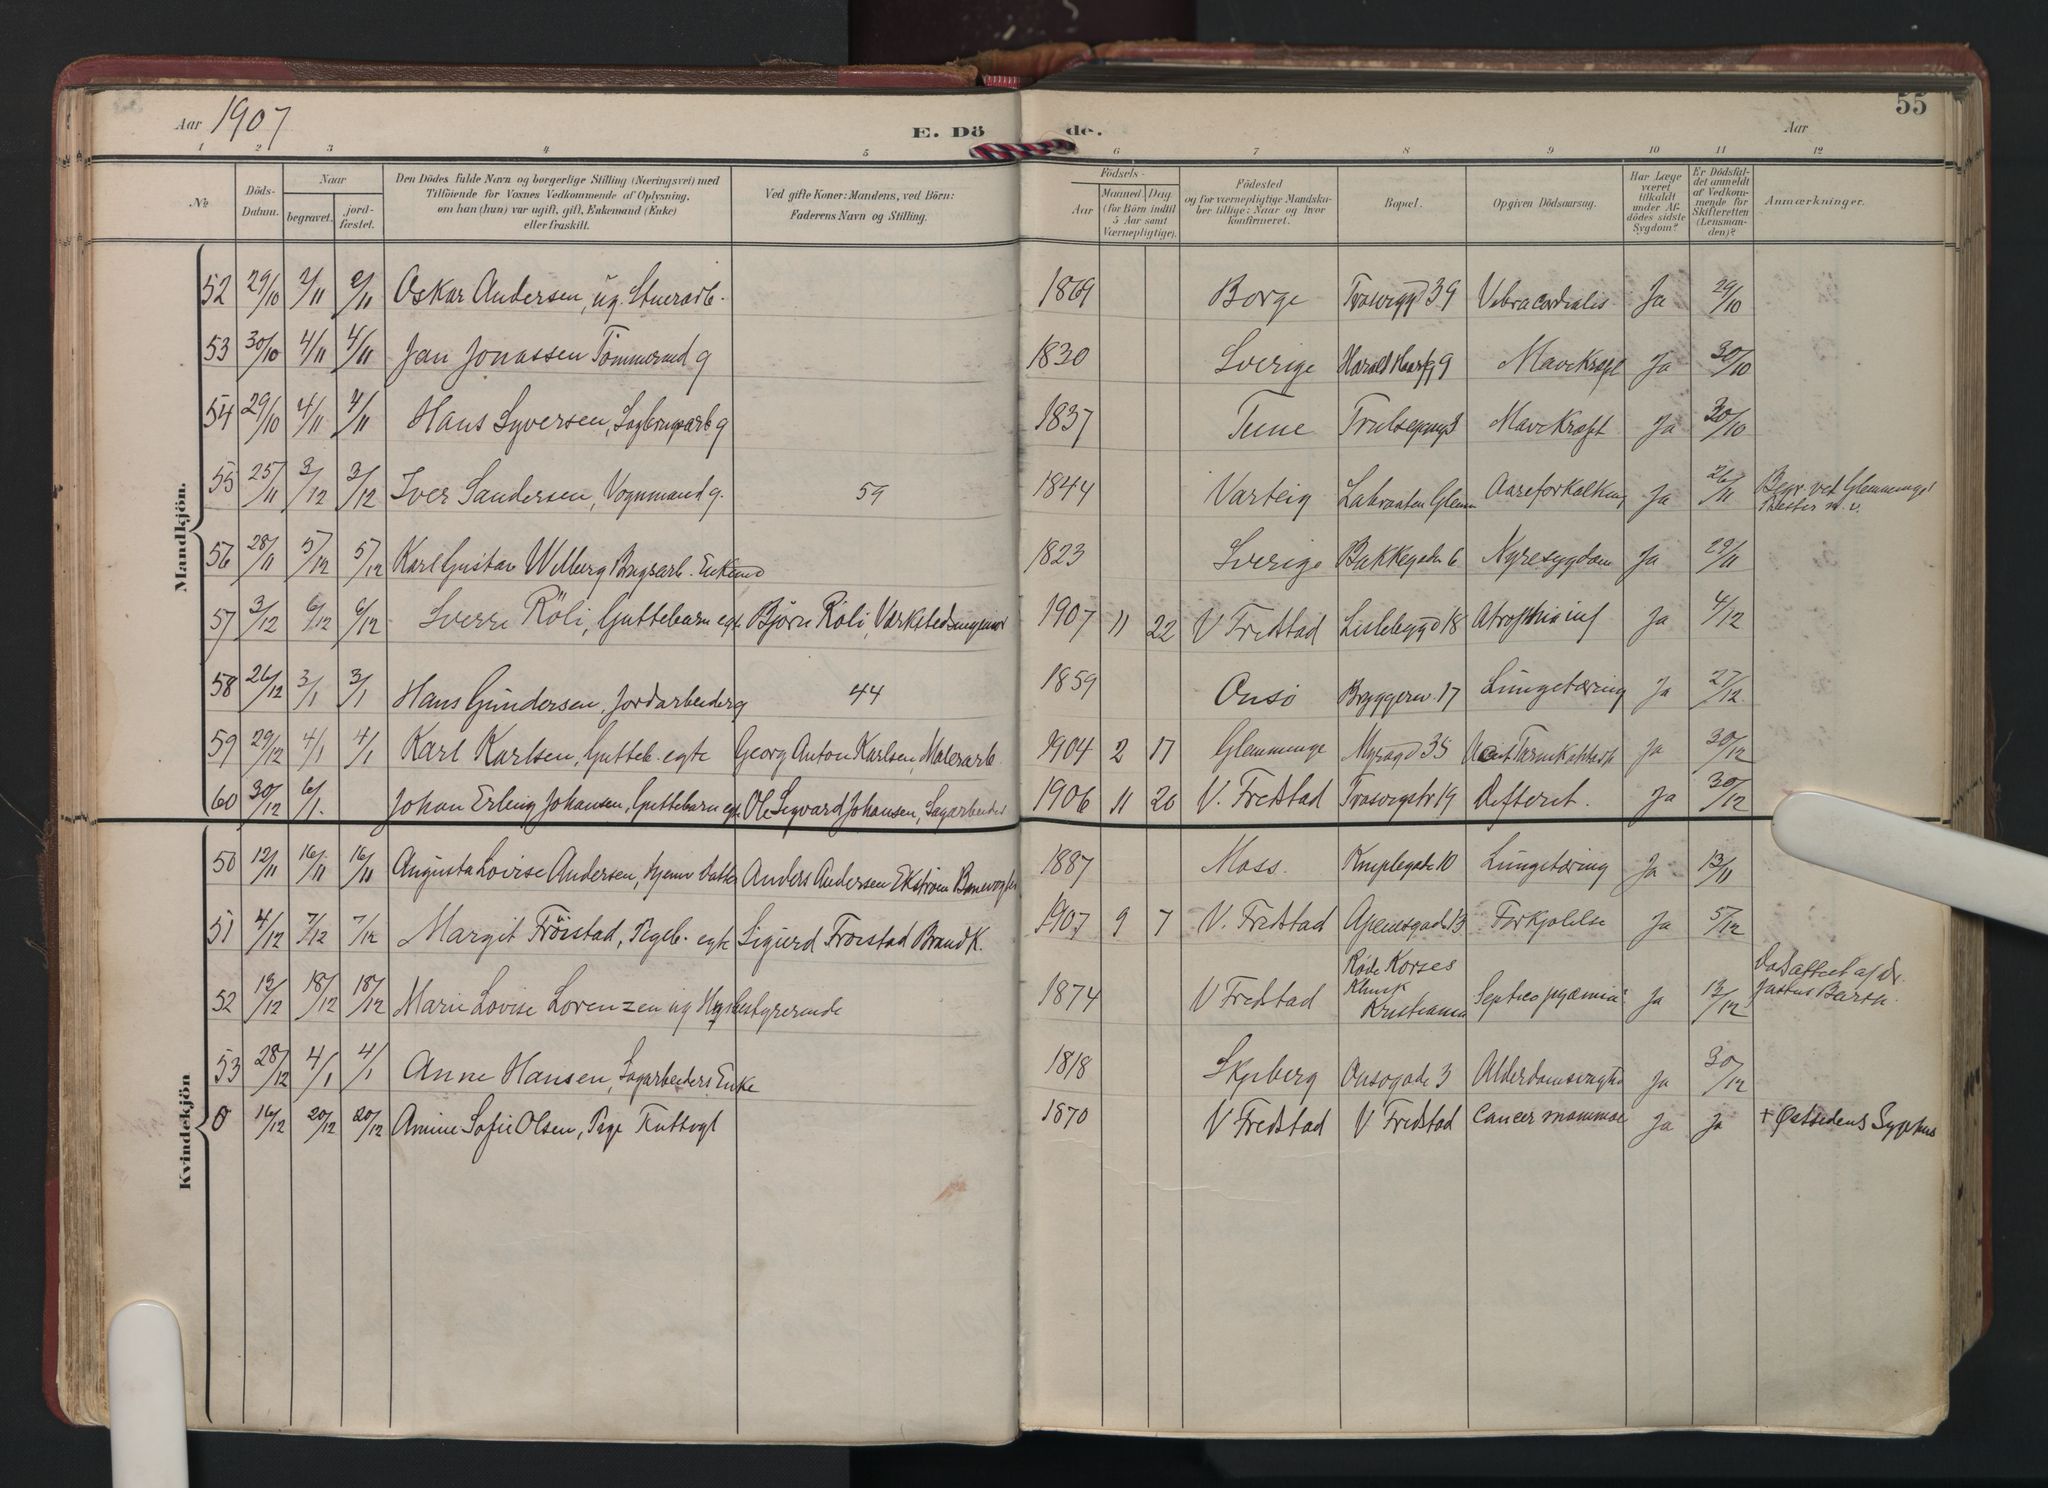 Aar 1907
E. Dö de.
55
Aar
1 2 3 4 5 6 7 8 9 10 11 12
№
Döds-Datum.
Naar
begravet.
jord-fæstet.
Den Dödes fulde Navn og borgerlige Stilling (Næringsvei) med
Tilföiende for Voxnes Vedkommende af Oplysning,
om han (hun) var ugift, gift, Enkemand (Enke)
eller fraskilt.
Ved gifte Koner: Mandens, ved Börn:
Faderens Navn og Stilling.
Födsels-
Aar
Maaned Dag
(for Börn indtil
5 Aar samt
Værnepligtige).
Födested
og for værnepligtige Mandska-
ber tillige: Naar og hvor
konfirmeret.
Bopæl.
Opgiven Dödsaarsag.
Har Læge
været
tilkaldt
under Af-
dödes sidste
Sygdom?
Er Dödsfal-
det anmeldt
af Vedkom-
mende for
Skifteretten
(Lensman-
den)?
Anmærkninger.
Mandkjön.
52 29/10 2/11 2/11 Oskar Andersen, ug. 1869 Borge 39 Ja 29/10
53 30/10 4/11 4/11 Jan Jonassen Tømmermd g 1830 Sverige 9 Mavekræft Ja 30/10
54 29/10 4/11 4/11 Hans Syversen, g 1837 Tune Mavekræft Ja 30/10
55 25/11 3/12 3/12 Iver Sandersen, Vognmand g. 59 1844 Varteig Glem Aareforkalkning Ja 26/11 Begr. ved
56 28/11 5/12 5/12 Karl Gustav 1823 Sverige Bakkegaden 6 Nyresygdom Ja 29/11
57 3/12 6/12 6/12 Sverre Röli, Guttebarn egte Bjørn Röli, 1907 11 22 V Fredstad 18 Atrophia inf Ja 4/12
58 26/12 3/1 3/1 Hans Gundersen, Jordarbeider g 44 1859 Onsö 17 Lungetæring Ja 27/12
59 29/12 4/1 4/1 Karl Karlsen, Gutteb. egte Georg Anton Karlsen, Malerarb. 1904 2 17 Glemminge 35 Ja 30/12
60 30/12 6/1. Johan Erling Johansen, Guttebarn egte Ole Sigvard Johansen, Sagarbeider 1906 11 20 V. Fredstad 19 Difterit. Ja 30/12
Kvindekjön
50 12/11 16/11 16/11 Augusta Lovise Andersen, Anders Andersen Ekström Banevogter 1887 Moss. 10 Lungetæring Ja 13/11
51 4/12 7/12 7/12 Margit Fröistad, Pigeb. egte Sigurd Fröistad 1907 9 7 V. Fredstad 13 Forkjølelse Ja 5/12
52 12/12 18/12 18/12 Marie Lovise Lorenzen ug 1874 V Fredstad Røde Korses Klinik Kristiania Ja 13/12
53 28/12 4/1 4/1 Anne Hansen, Sagarbeiders Enke 1818 Skjeberg Onsögade 3 Ja 30/12
0 16/12 20/12 20/12 Sofie Olsen, Pige 1870 V Fredstad V Fredstad Cancer mammae Ja Ja + Østsidens Sygehus